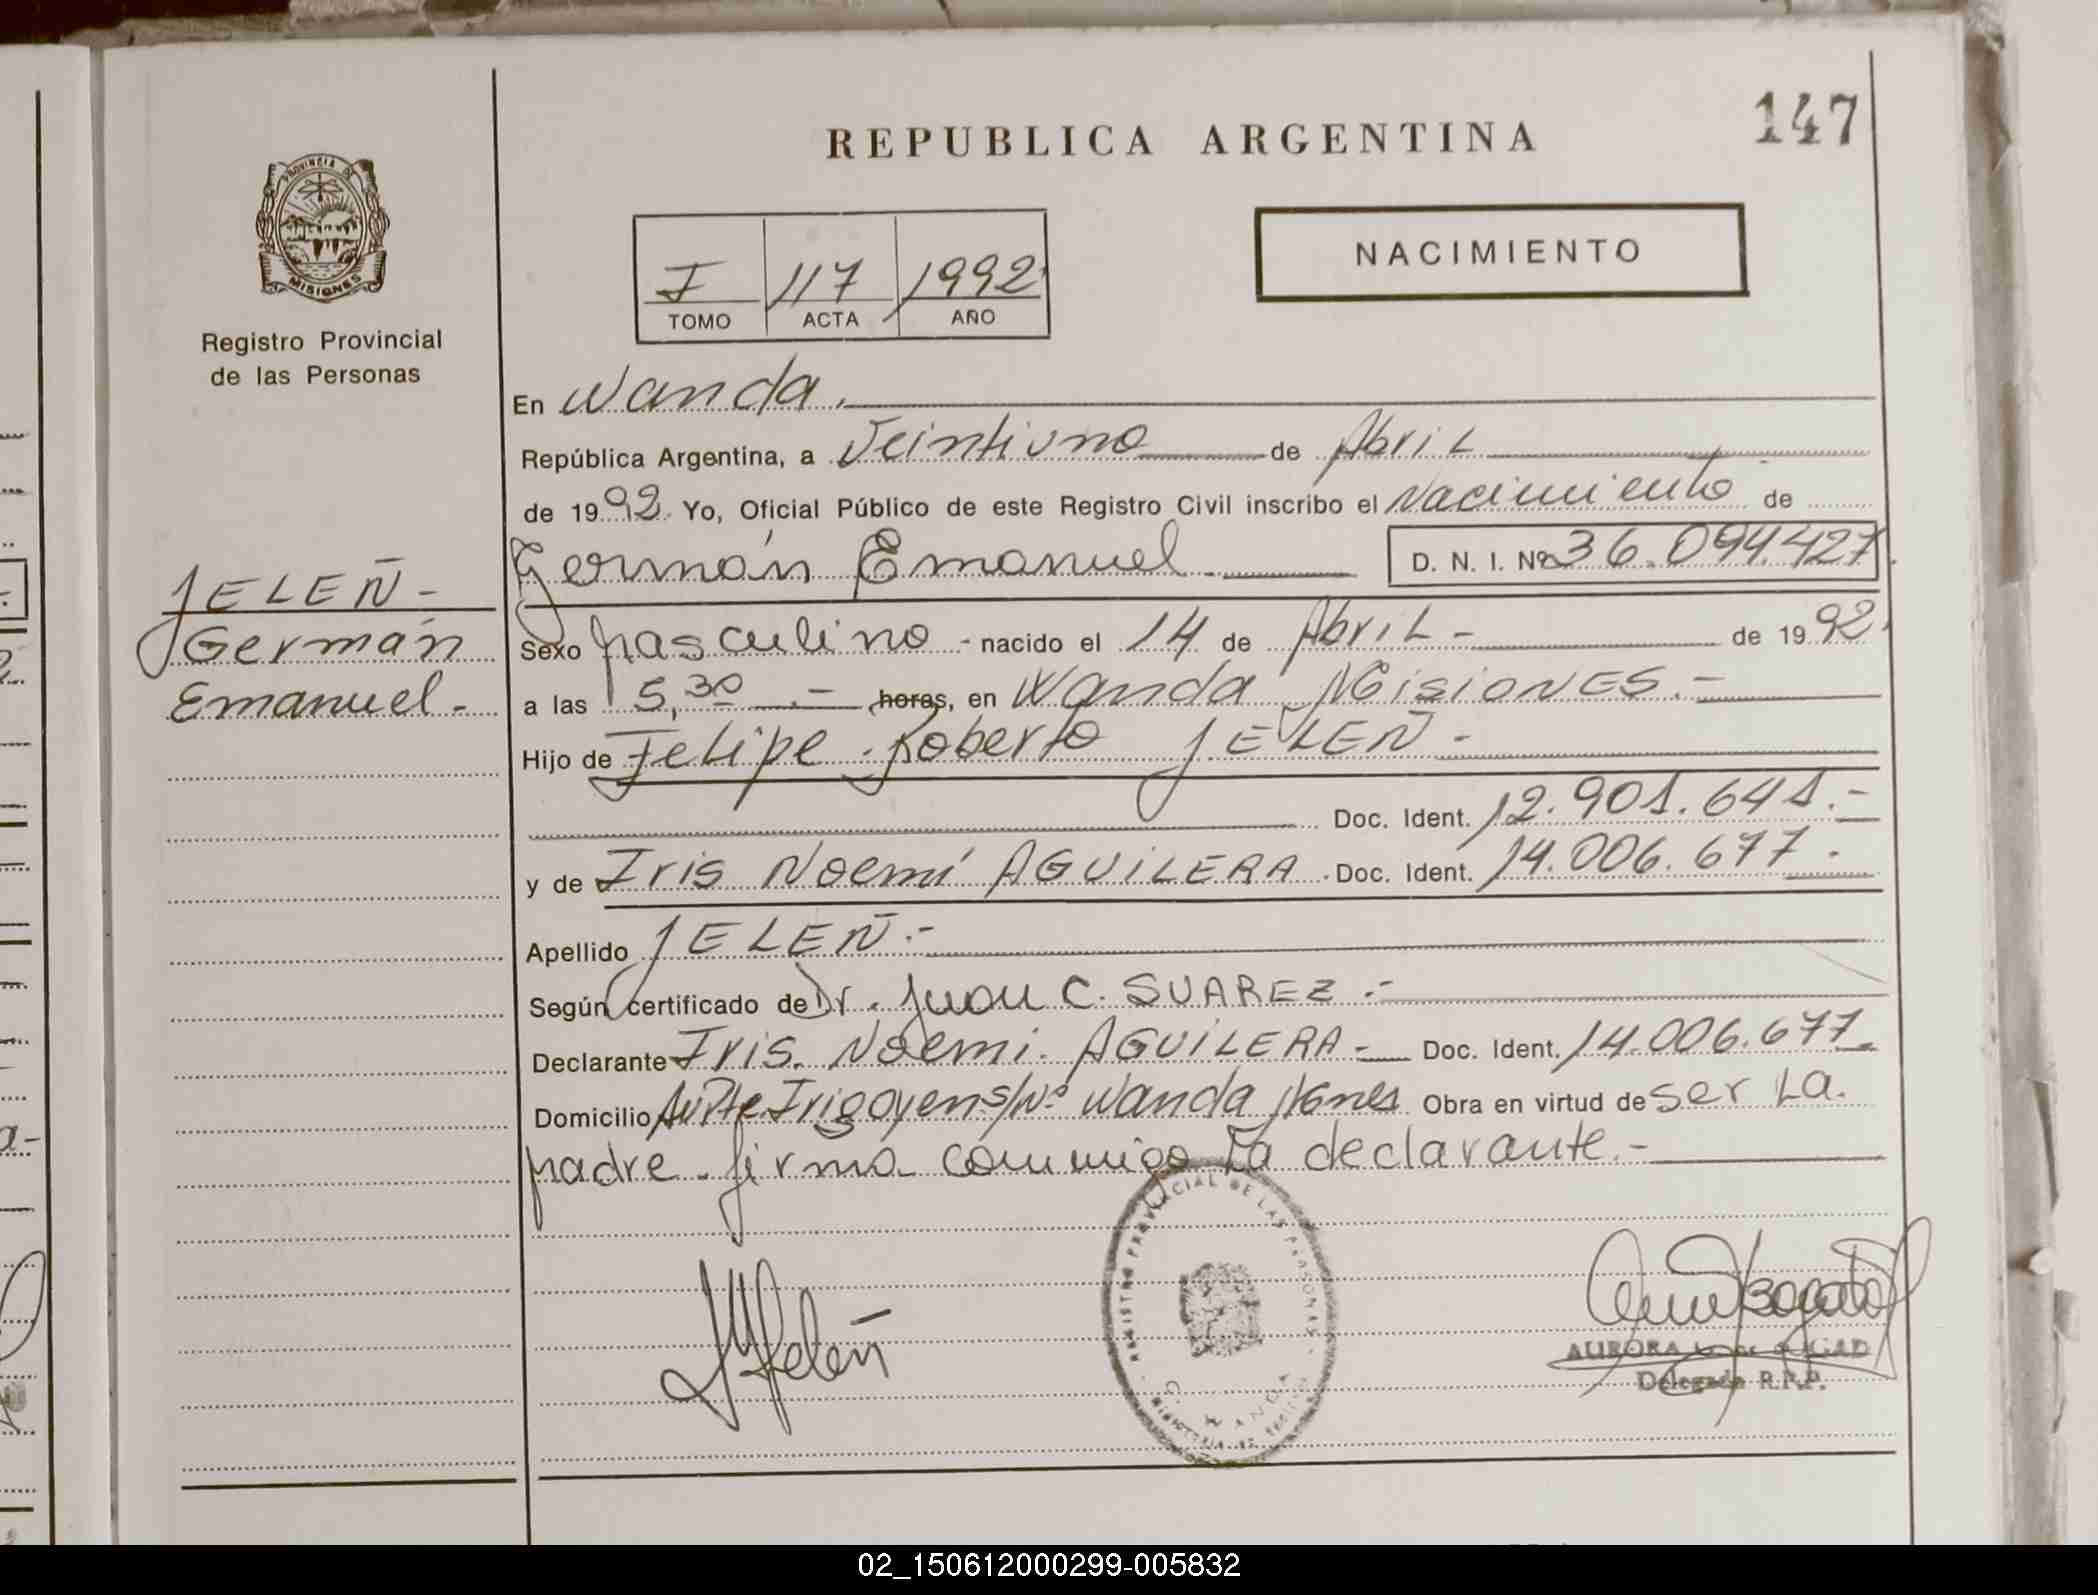 147
REPUBLICA ARGENTINA
PROVINCIA DE
MISIONES
Registro Provincial
de las Personas
NACIMIENTO
I 117 1992
TOMO ACTA AÑO
En Wanda.
República Argentina, a Veintiuno de Abril
de 1992. Yo, Oficial Público de este Registro Civil inscribo el Nacimiento de
Germán Emanuel D. N. I. Nº 36.094.427
JELEÑ -
Germán
Emanuel -
Sexo Masculino - nacido el 14 de Abril - de 1992.
a las 15,30 .- horas, en Wanda Misiones.-
Hijo de Felipe Roberto JELEÑ -
Doc. Ident. 12.901.641.-
y de Iris Noemí AGUILERA. Doc. Ident. 14.006.677.
Apellido JELEÑ.-
Según certificado de Dr. Juan C. SUAREZ.-
Declarante Iris Noemi AGUILERA - Doc. Ident. 14.006.677.
Domicilio Av Pte Irigoyen s/Nº Wanda Mnes Obra en virtud de ser La
Madre. firma conmigo La declarante.-
REGISTRO PROVINCIAL DE LAS PERSONAS
WANDA
Jeleñ
AURORA
Delegada R.P.P.
02_150612000299-005832